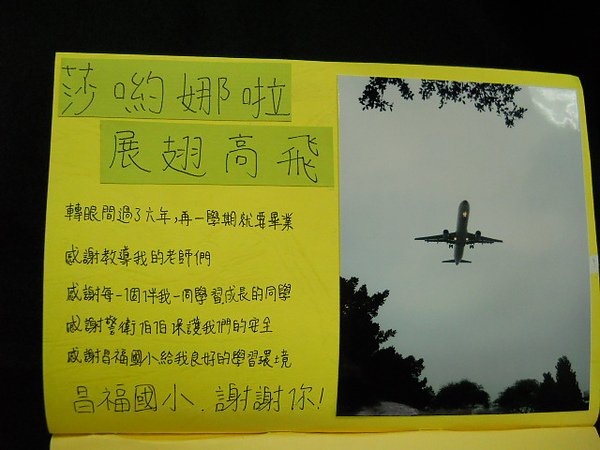 莎喲娜啦
展翅高飛
轉眼間過了六年,再一學期就要畢業
感謝教導我的老師們
感謝每一個伴我一同學習成長的同學
感謝警衛伯伯保護我們的安全
感謝昌福國小給我良好的學習環境
昌福國小.謝謝你!